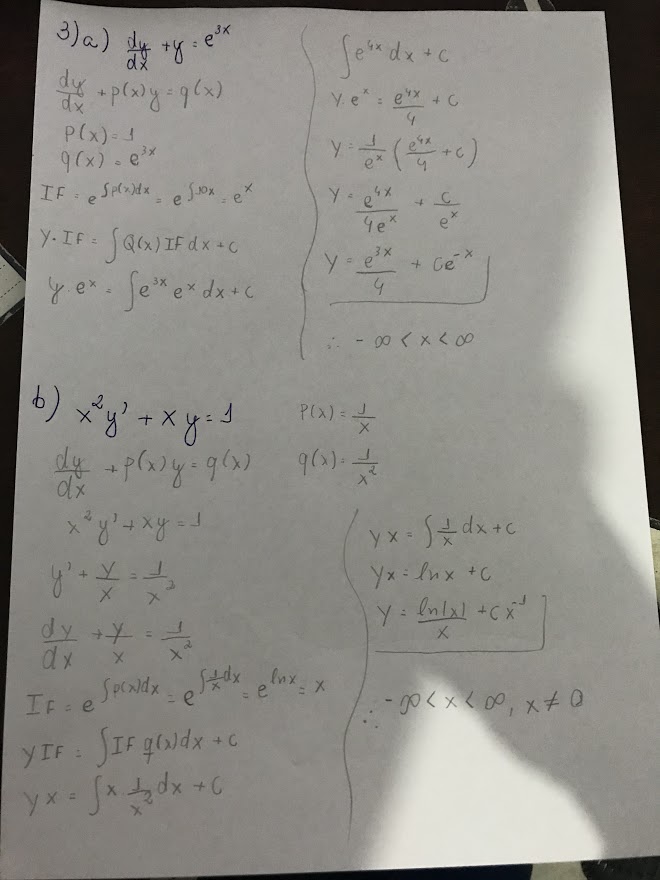 3)a) dy/dx + y = e^3x
dy/dx + p(x)y = q(x)
P(x) = 1
q(x) = e^3x
IF = e^∫p(x)dx = e^∫1dx = e^x
y·IF = ∫Q(x) IF dx + C
y·e^x = ∫e^3x e^x dx + C
∫e^4x dx + C
y·e^x = e^4x/4 + C
y = 1/e^x (e^4x/4 + C)
y = e^4x/4e^x + C/e^x
y = e^3x/4 + Ce^-x
∴ -∞ < x < ∞
b) x²y' + xy = 1
dy/dx + p(x)y = q(x)
x²y' + xy = 1
y' + y/x = 1/x²
dy/dx + y/x = 1/x²
IF = e^∫p(x)dx = e^∫1/x dx = e^lnx = x
yIF = ∫IF q(x)dx + C
yx = ∫x·1/x² dx + C
P(x) = 1/x
q(x) = 1/x²
yx = ∫1/x dx + C
yx = lnx + C
y = ln|x|/x + Cx^-1
∴ -∞ < x < ∞, x ≠ 0